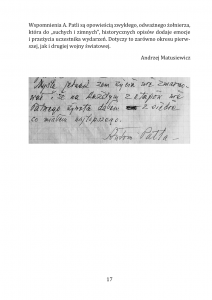 Wspomnienia A. Patli są opowieścią zwykłego, odważnego żołnierza,
która do „suchych i zimnych”, historycznych opisów dodaje emocje
i przeżycia uczestnika wydarzeń. Dotyczy to zarówno okresu pierw-
szej, jak i drugiej wojny światowej.
Andrzej Matusiewicz
Myślę, że życia nie zmarno-
i że na każdym z etapów me-
dałem z siebie
co miałem najlepszego.
Antoni Patla
17